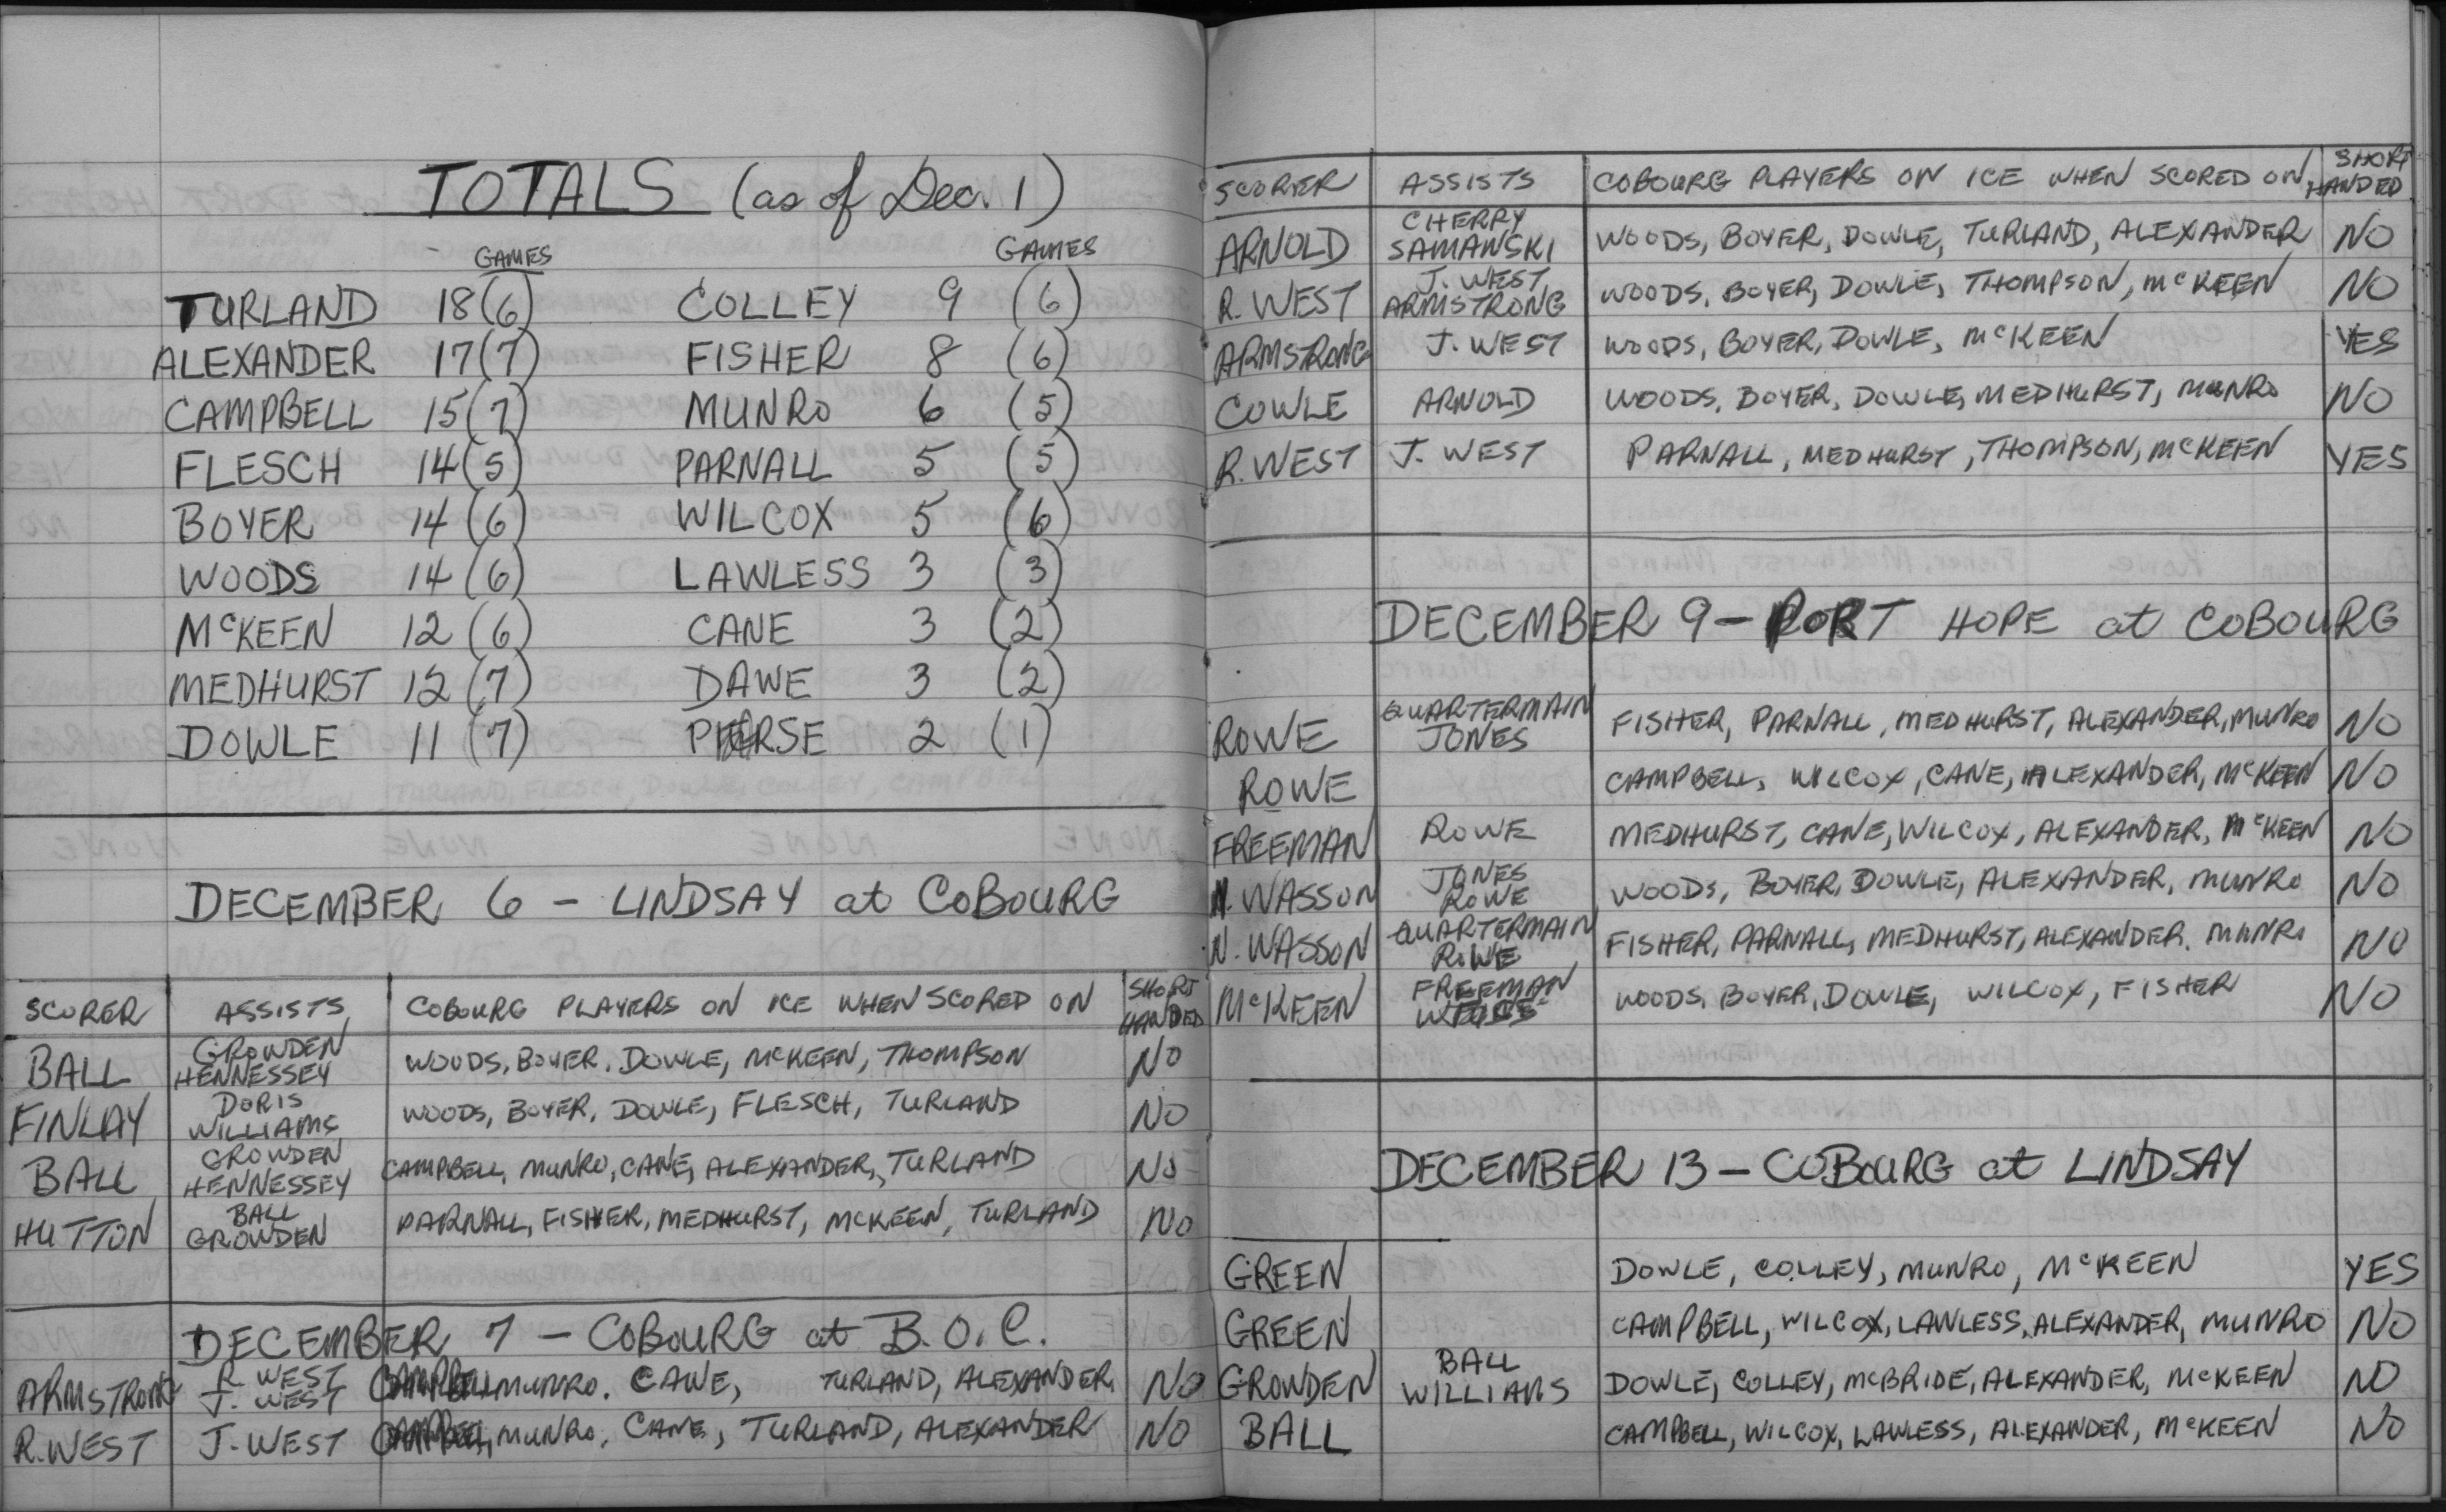 TOTALS (as of Dec. 1)
GAMES GAMES
TURLAND 18(6) COLLEY 9 (6)
ALEXANDER 17(7) FISHER 8 (6)
CAMPBELL 15(7) MUNRO 6 (5)
FLESCH 14(5) PARNALL 5 (5)
BOYER 14(6) WILCOX 5 (6)
WOODS 14(6) LAWLESS 3 (3)
McKEEN 12(6) CANE 3 (2)
MEDHURST 12(7) DAWE 3 (2)
DOWLE 11(7) 2 (1)
DECEMBER 6 - LINDSAY at COBOURG
SCORER ASSISTS COBOURG PLAYERS ON ICE WHEN SCORED ON SHORT HANDED
BALL GROWDEN HENNESSEY WOODS, BOYER, DOWLE, McKEEN, THOMPSON NO
FINLAY DORIS WILLIAMS WOODS, BOYER, DOWLE, FLESCH, TURLAND NO
BALL GROWDEN HENNESSEY CAMPBELL, MUNRO, CANE, ALEXANDER, TURLAND NO
HUTTON BALL GROWDEN PARNALL, FISHER, MEDHURST, McKEEN, TURLAND NO
DECEMBER 7 - COBOURG at B.O.C.
ARMSTRONG R WEST J. WEST CAMPBELL MUNRO. CANE, TURLAND, ALEXANDER NO
R.WEST J. WEST CAMPBELL, MUNRO, CANE, TURLAND, ALEXANDER NO
SCORER ASSISTS COBOURG PLAYERS ON ICE WHEN SCORED ON SHORT HANDED
ARNOLD CHERRY SAMANSKI WOODS, BOYER, DOWLE, TURLAND, ALEXANDER NO
R. WEST J. WEST ARMSTRONG WOODS, BOYER, DOWLE, THOMPSON, McKEEN NO
ARMSTRONG J. WEST WOODS, BOYER, DOWLE, McKEEN YES
COWLE ARNOLD WOODS, BOYER, DOWLE, MEDHURST, MUNRO NO
R. WEST J. WEST PARNALL, MEDHURST, THOMPSON, McKEEN YES
DECEMBER 9 - PORT HOPE at COBOURG
ROWE QUARTERMAIN JONES FISHER, PARNALL, MEDHURST, ALEXANDER, MUNRO NO
ROWE CAMPBELL, WILCOX, CANE, ALEXANDER, McKEEN NO
FREEMAN ROWE MEDHURST, CANE, WILCOX, ALEXANDER, McKEEN NO
N. WASSON JONES ROWE WOODS, BOYER, DOWLE, ALEXANDER, MUNRO NO
N. WASSON QUARTERMAIN ROWE FISHER, PARNALL, MEDHURST, ALEXANDER, MUNRO NO
McKEEN FREEMAN WOODS, BOYER, DOWLE, WILCOX, FISHER NO
DECEMBER 13 - COBOURG at LINDSAY
GREEN DOWLE, COLLEY, MUNRO, McKEEN YES
GREEN CAMPBELL, WILCOX, LAWLESS, ALEXANDER, MUNRO NO
GROWDEN BALL WILLIAMS DOWLE, COLLEY, McBRIDE, ALEXANDER, McKEEN NO
BALL CAMPBELL, WILCOX, LAWLESS, ALEXANDER, McKEEN NO